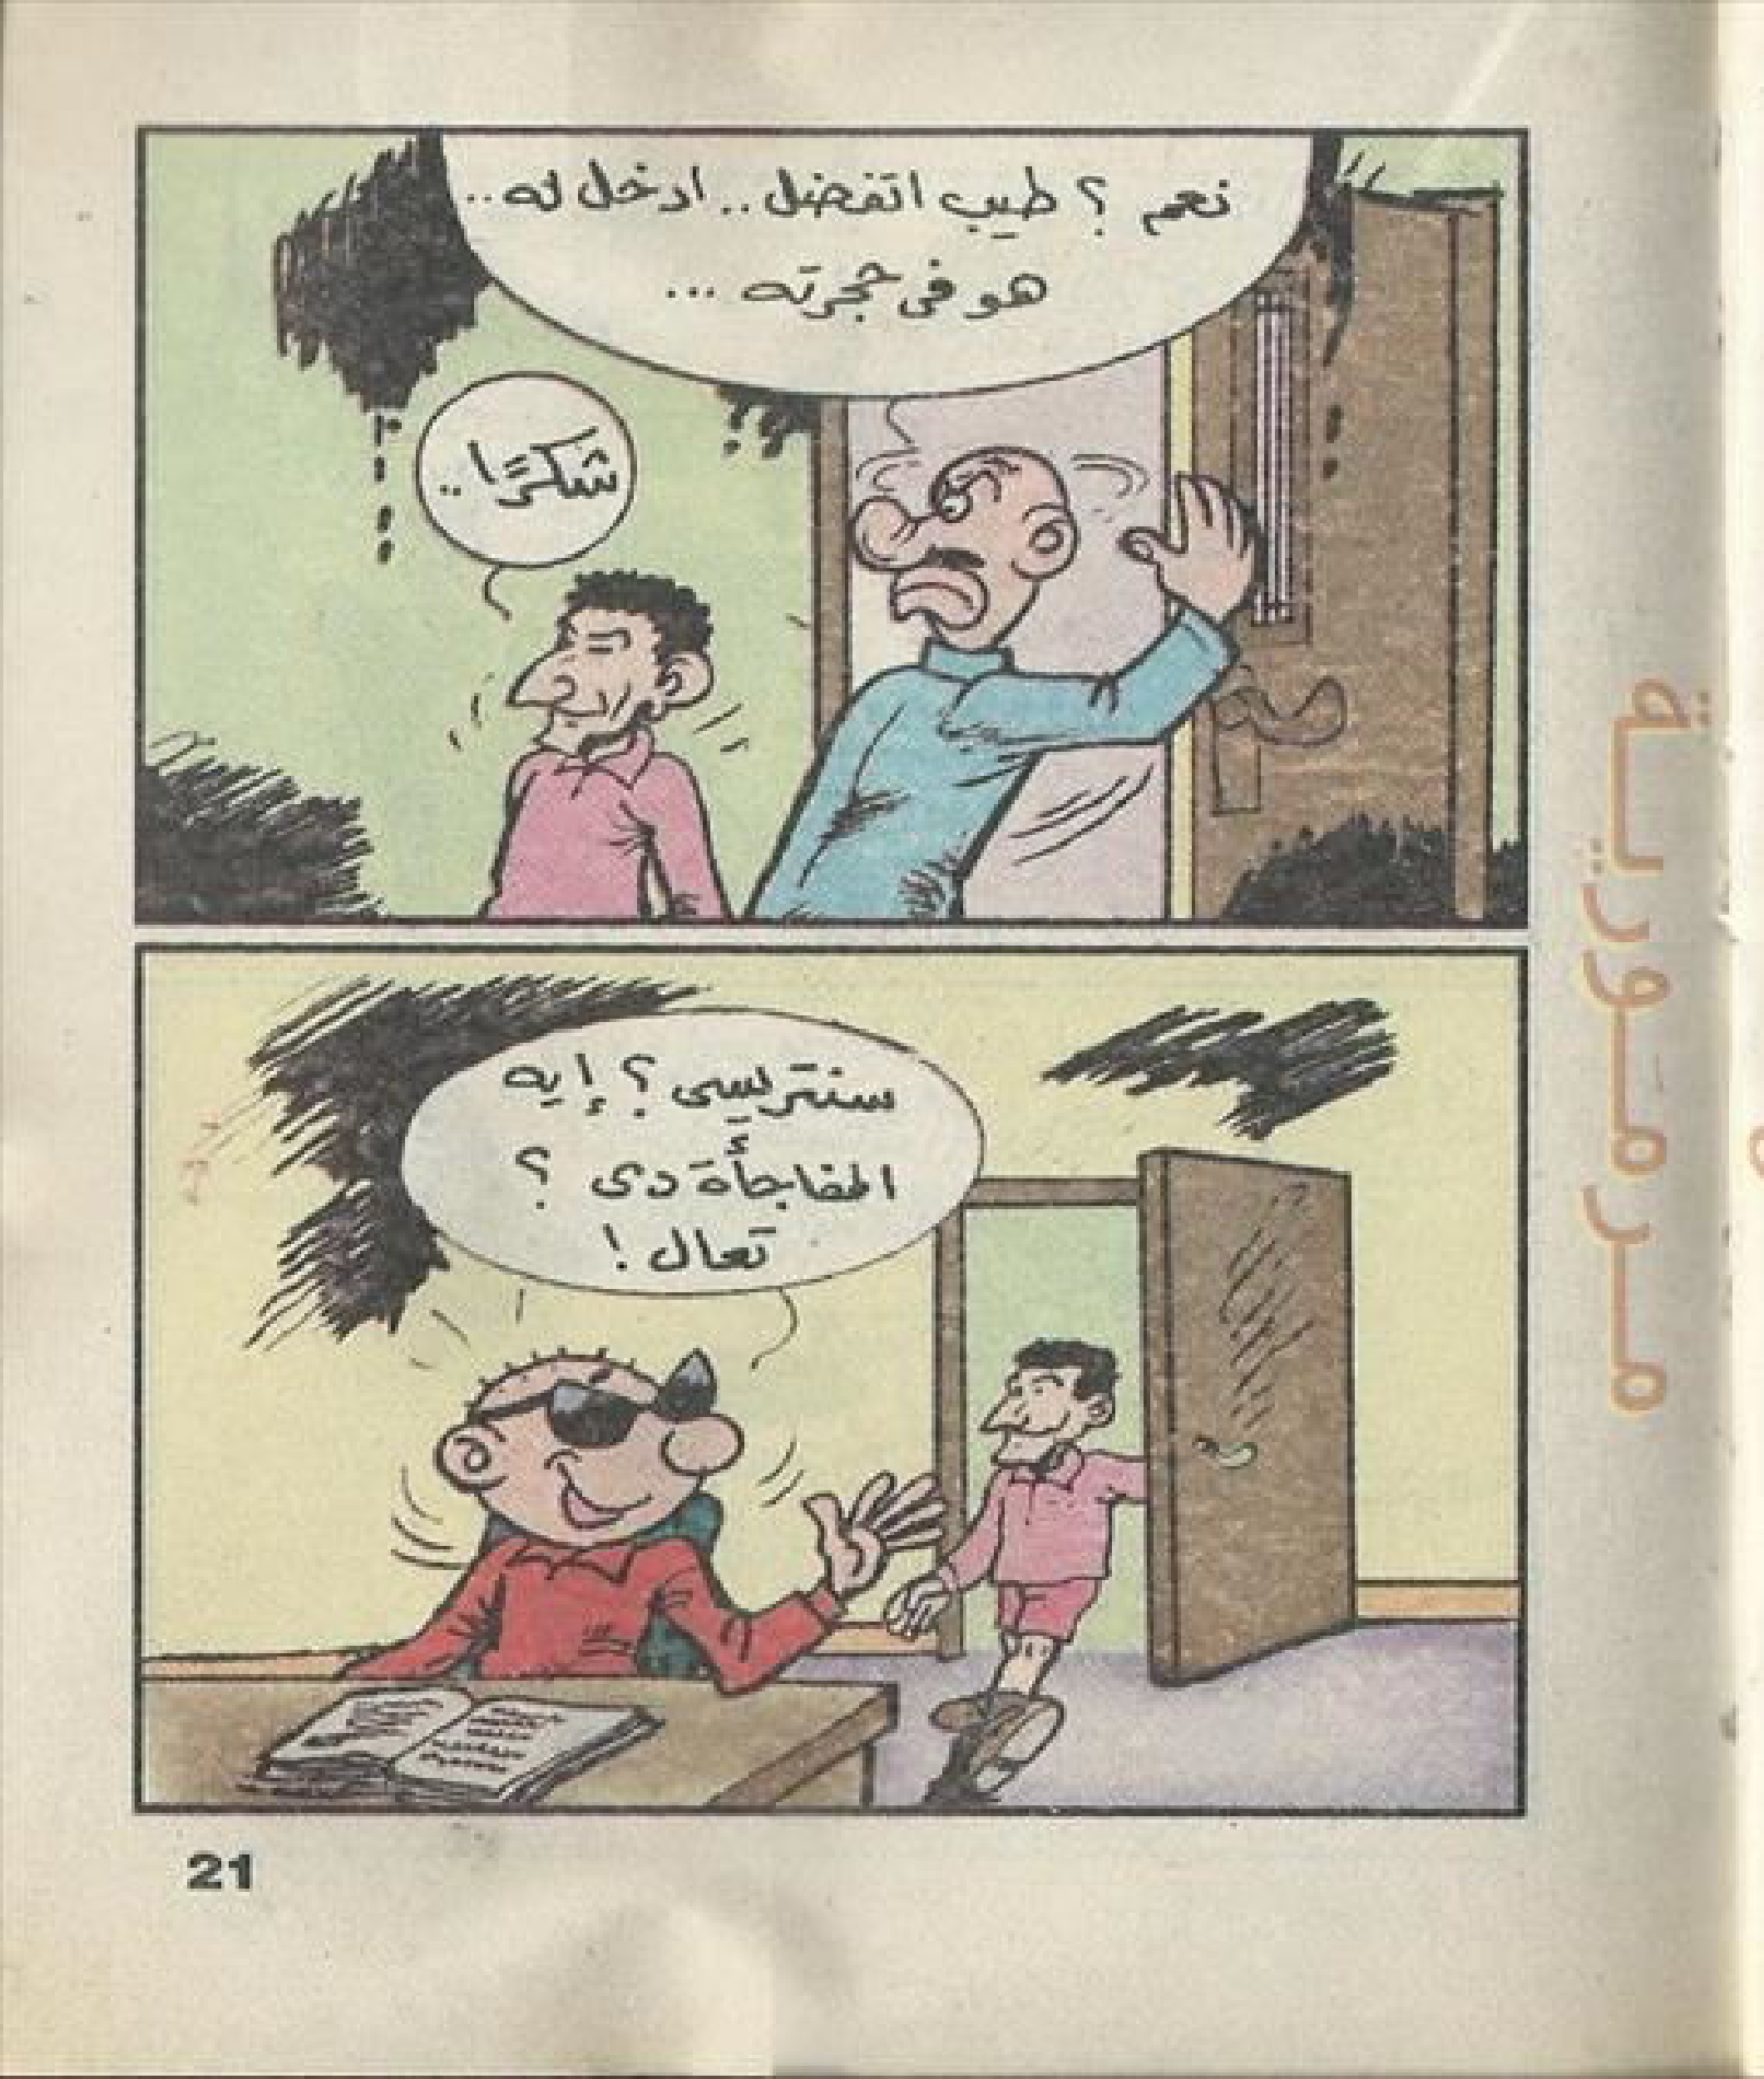 نعم ؟ طيب اتفضل .. ادخل له ..
هو فى حجرته ...
شكرًا ..
سنتريسى ؟ إيه
المفاجأة دى ؟
تعال !
21
مرمورية